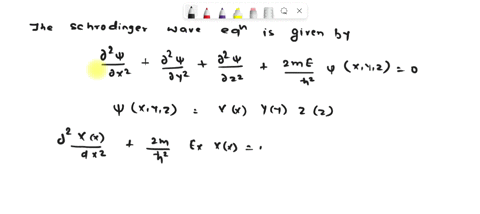 The schrodinger wave eqⁿ is given by
∂²ψ/∂x² + ∂²ψ/∂y² + ∂²ψ/∂z² + 2mE/ħ² ψ(x,y,z) = 0
ψ(x,y,z) = X(x) Y(y) Z(z)
∂²X(x)/dx² + 2m/ħ² Ex X(x) = .